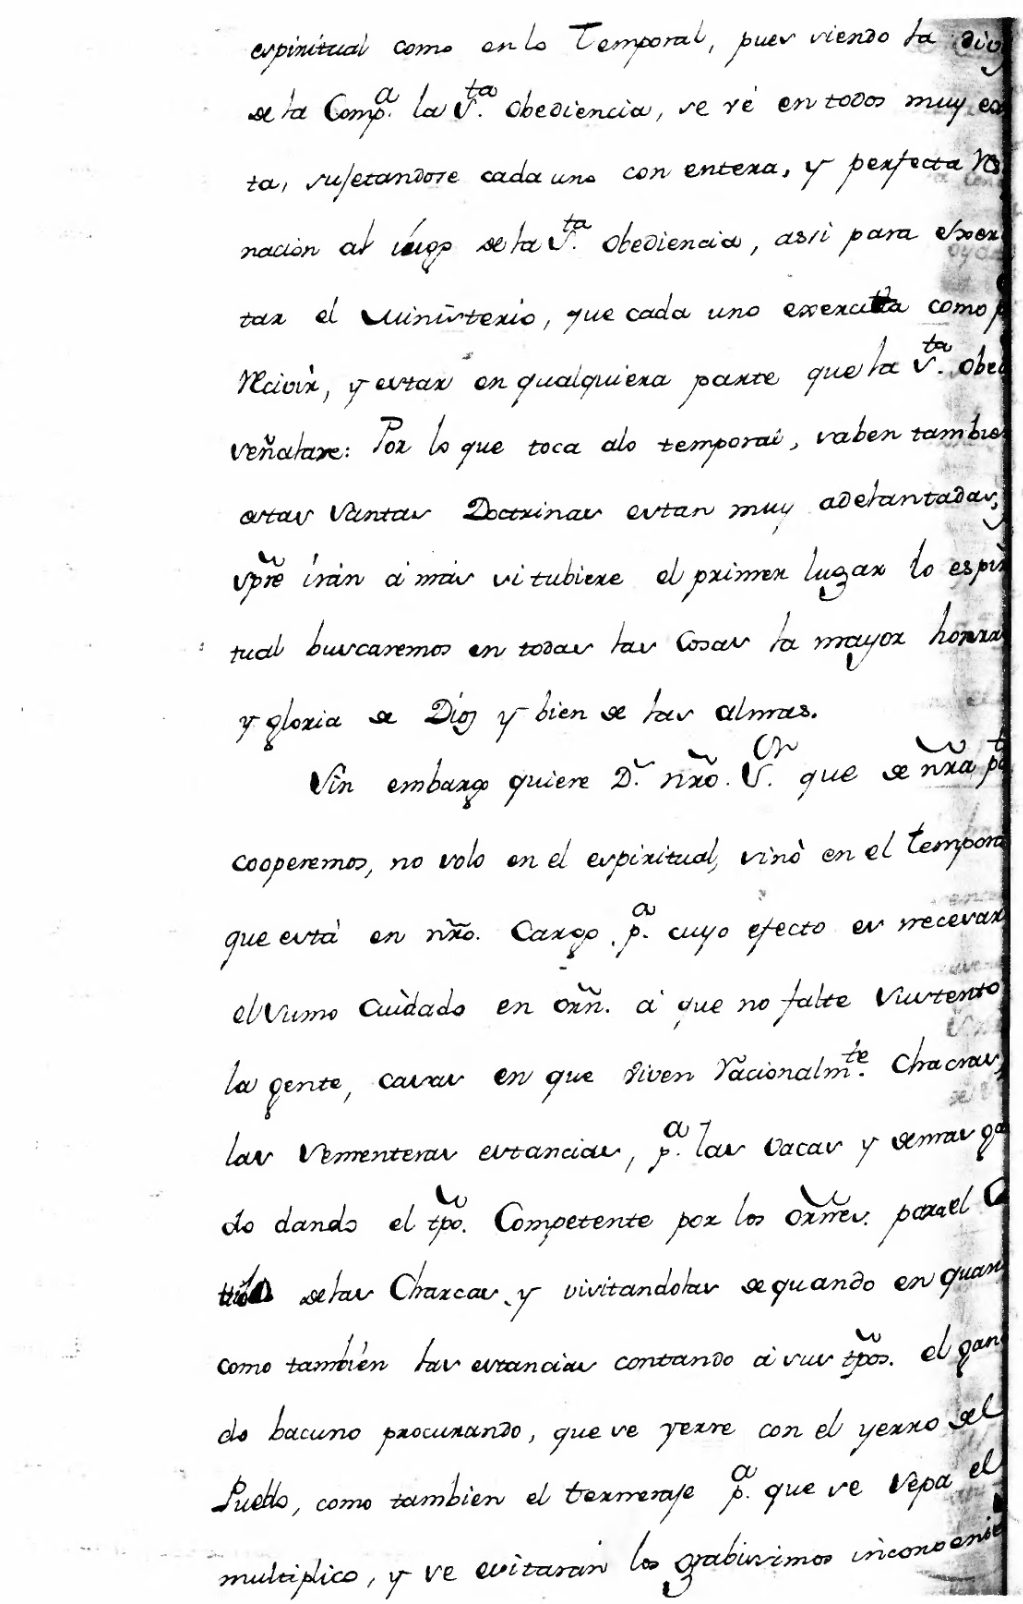 espiritual como en lo Temporal, pues siendo la
de la Comp.ª la S.ta Obediencia, se vé en todos muy
ta, sujetandose cada uno con entera, y perfecta
nacion al iugo de la S.ta Obediencia, assi para exer
tar el Ministerio, que cada uno exercita como
recivir, y estar en qualquiera parte que la S.ta Obed
señalare: Por lo que toca alo temporal, saben tambie
estas Santas Doctrinas estan muy adelantadas,
spre irán á más si tubiere el primer lugar lo espiri
tual buscaremos en todas las Cosas la mayor honra
y gloria de Dios y bien de las almas.
Sin embargo quiere D.s nrõ. S.or que de nrã
cooperemos, no solo en el espiritual, sinò en el tempora
que está en nrõ. Cargo p.ª cuyo efecto es necesar
el sumo Cuidado en orñ. á que no falte sustento
la gente, casas en que viven racionalm.te Chacras,
las sementeras estancias, p.ª las vacas y demas ga
do dando el tpõ. Competente por los orñes. para el
de las Charcas, y visitandolas de quando en quan
como tambien las estancias contando á sus tpõs. el gana
do bacuno procurando, que se yerre con el yerro del
Pueblo, como tambien el terneraje p.ª que se sepa el
multiplico, y se evitarán los grabissimos inconvenie